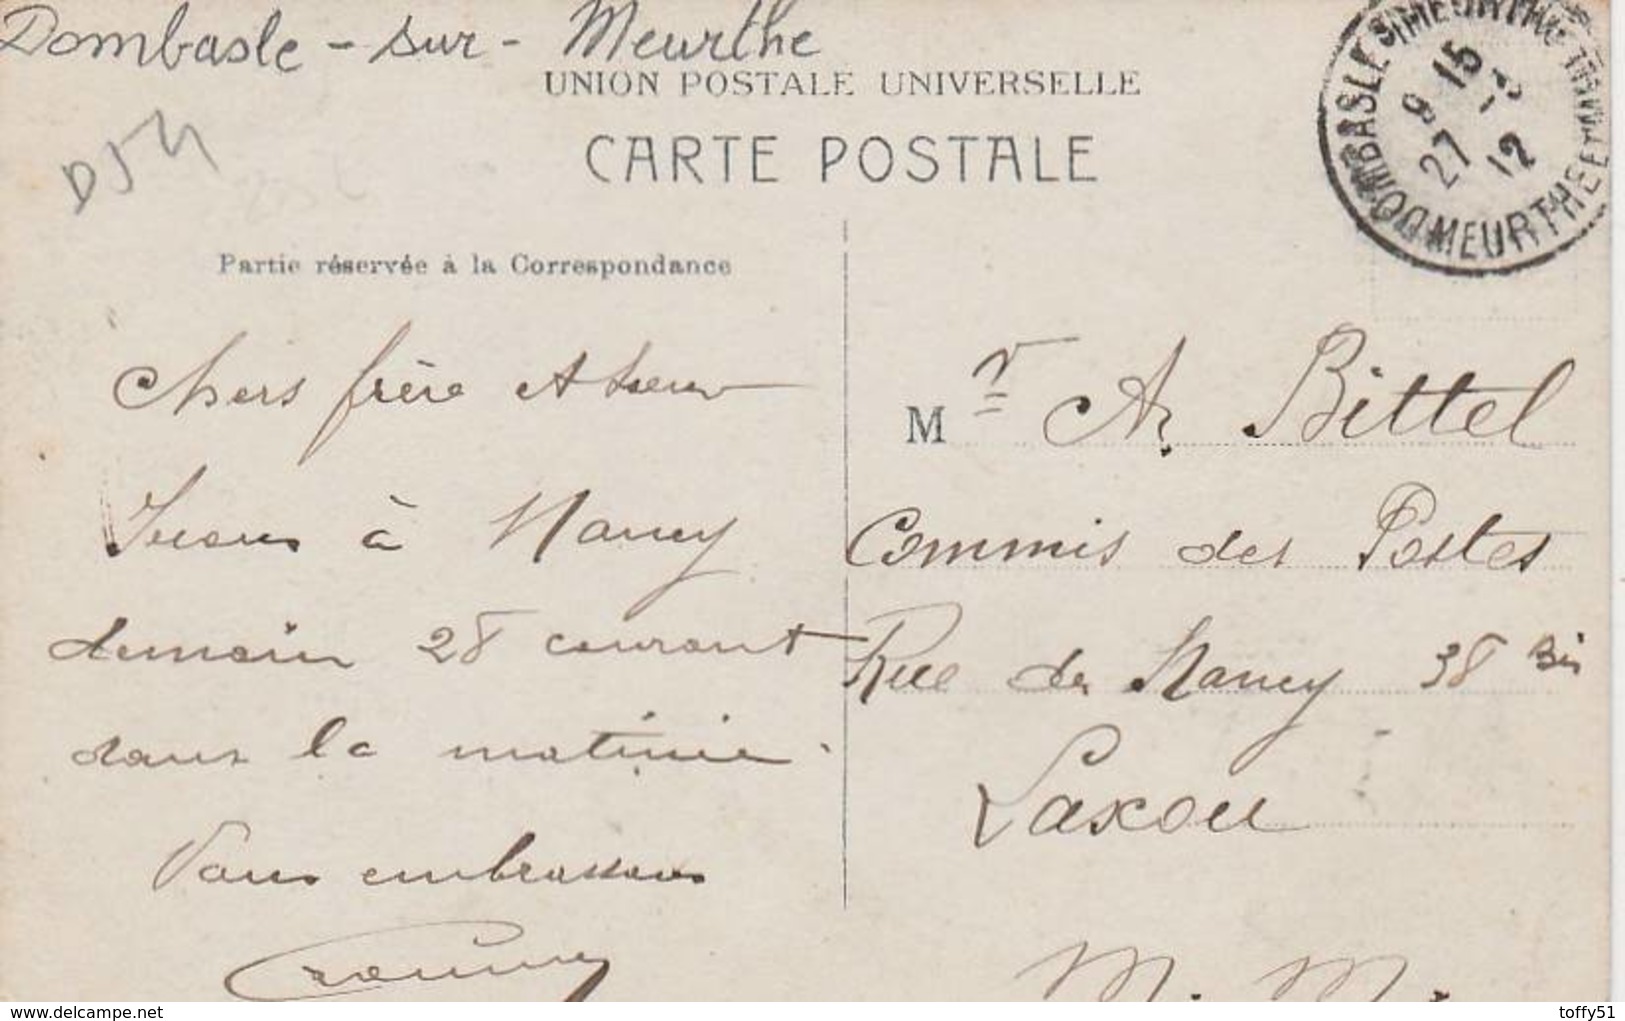 Dombasle - sur - Meurthe
UNION POSTALE UNIVERSELLE
CARTE POSTALE
D54
DOMBASLE S/MEURTHE
9 15
27 -3
12
MEURTHE ET
Partie réservée à la Correspondance
Chers frère et soeur
Irons à Nancy
demain 28 courant
dans la matinée.
Vous embrassons
Mr A. Bittel
Commis des Postes
Rue de Nancy 38 Bis
Laxou
M. M.
www.delcampe.net
toffy51